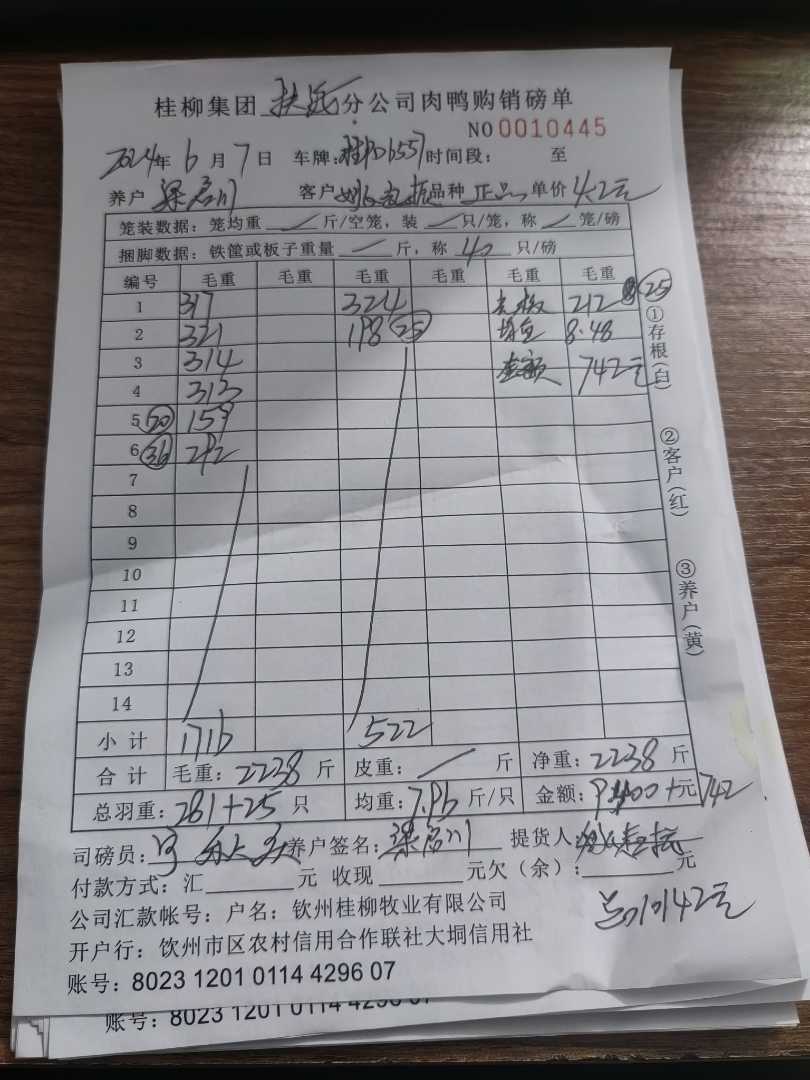 桂柳集团 分公司肉鸭购销磅单
NO 0010445
2024年 6 月 7 日 车牌: 时间段: 至
养户 梁启川 客户 品种 正品 单价 4.2元
笼装数据: 笼均重 斤/空笼, 装 只/笼, 称 笼/磅
捆脚数据: 铁筐或板子重量 斤, 称 40 只/磅
编号 毛重 毛重 毛重 毛重 毛重 毛重
1 317 324 212 25
2 321 198 25 均重 8.48
3 314 金额 742元
4 313
5 20 159
6 36 292
7
8
9
10
11
12
13
14
小计 1716 522
合计 毛重: 2238 斤 皮重: 斤 净重: 2238 斤
总羽重: 281+25 只 均重: 7.96 斤/只 金额: 9400+元742
司磅员: 养户签名: 梁启川 提货人:
付款方式: 汇 元 收现 元欠(余): 元
总10142元
公司汇款帐号: 户名: 钦州桂柳牧业有限公司
开户行: 饮州市区农村信用合作联社大垌信用社
账号: 8023 1201 0114 4296 07
①存根(白)
②客户(红)
③养户(黄)
账号: 8023 1201 0114 4296 07